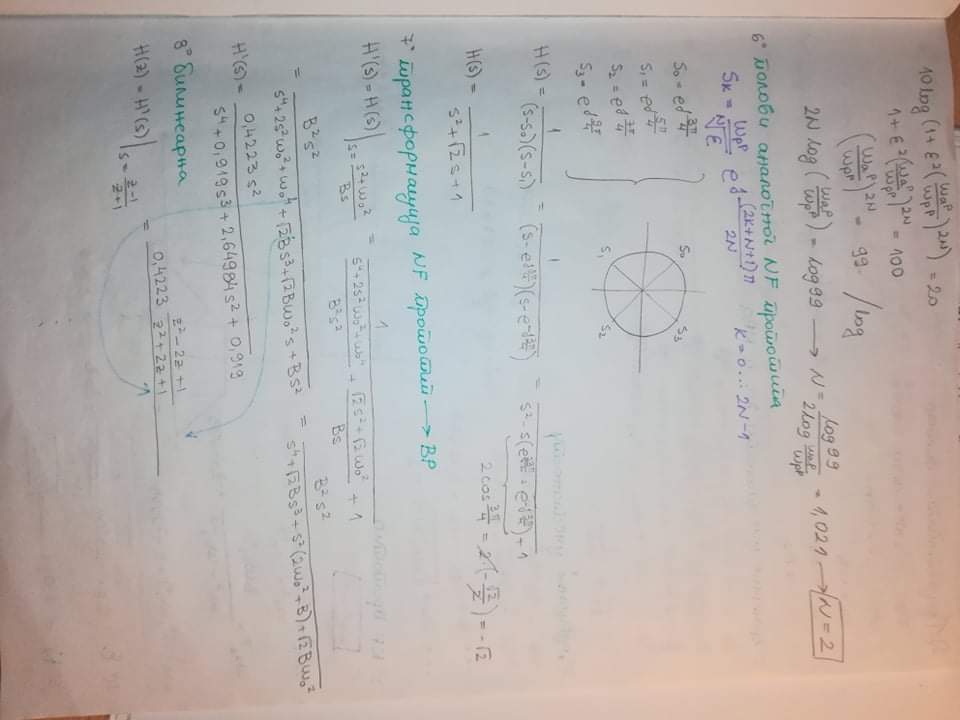 10log(1+ε²(ωaᵖ/ωpᵖ)²ᴺ) = 20
1+ε²(ωaᵖ/ωpᵖ)²ᴺ = 100
(ωaᵖ/ωpᵖ)²ᴺ = 99 /log
2N log(ωaᵖ/ωpᵖ) = log99 → N = log99 / 2log(ωaᵖ/ωpᵖ) = 1,021 → N=2
6° полови аналогног NF прототипа
Sₖ = ωpᵖ/ᴺ√ε e^(j(2k+N+1)π/2N) k=0...2N-1
S₀ = e^(j3π/4)
S₁ = e^(j5π/4)
S₂ = e^(j7π/4)
S₃ = e^(j9π/4)
S₀ S₃
S₁ S₂
H(s) = 1/((s-s₀)(s-s₁)) = 1/((s-e^(j3π/4))(s-e^(-j3π/4))) = 1/(s²-s(e^(j3π/4)+e^(-j3π/4))+1)
2cos 3π/4 = 2·(-√2/2) = -√2
H(s) = 1/(s²+√2s+1)
7° трансформација NF прототип → BP
H'(s) = H(s)|s=(s²+ω₀²)/Bs = 1/((s⁴+2s²ω₀²+ω₀⁴)/B²s² + (√2s²+√2ω₀²)/Bs + 1)
= B²s²/(s⁴+2s²ω₀²+ω₀⁴+√2Bs³+√2Bω₀²s+Bs²) = B²s²/(s⁴+√2Bs³+s²(2ω₀²+B)+√2Bω₀²
H'(s) = 0,4223s²/(s⁴+0,919s³+2,64984s²+0,919
8° билинеарна
H(z) = H'(s)|s=(z-1)/(z+1) = 0,4223 (z²-2z+1)/(z²+2z+1)